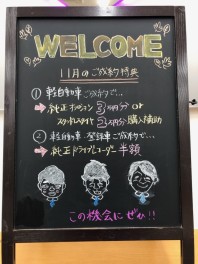 WELCOME
11月のご成約特典
① 軽自動車ご成約で…
➡ 純正オプション3万円分 or
スタッドレスタイヤ3万円分購入補助
② 軽自動車・登録車ご成約で…
➡ 純正ドライブレコーダー半額
この機会にぜひ!!